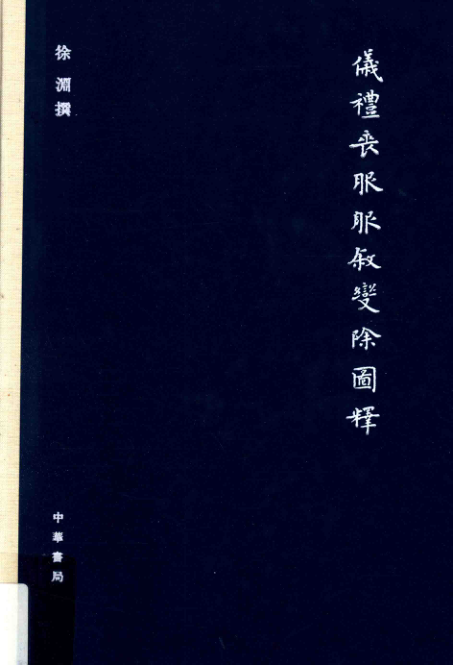 儀禮喪服服敘變除圖釋
徐淵撰
中華書局